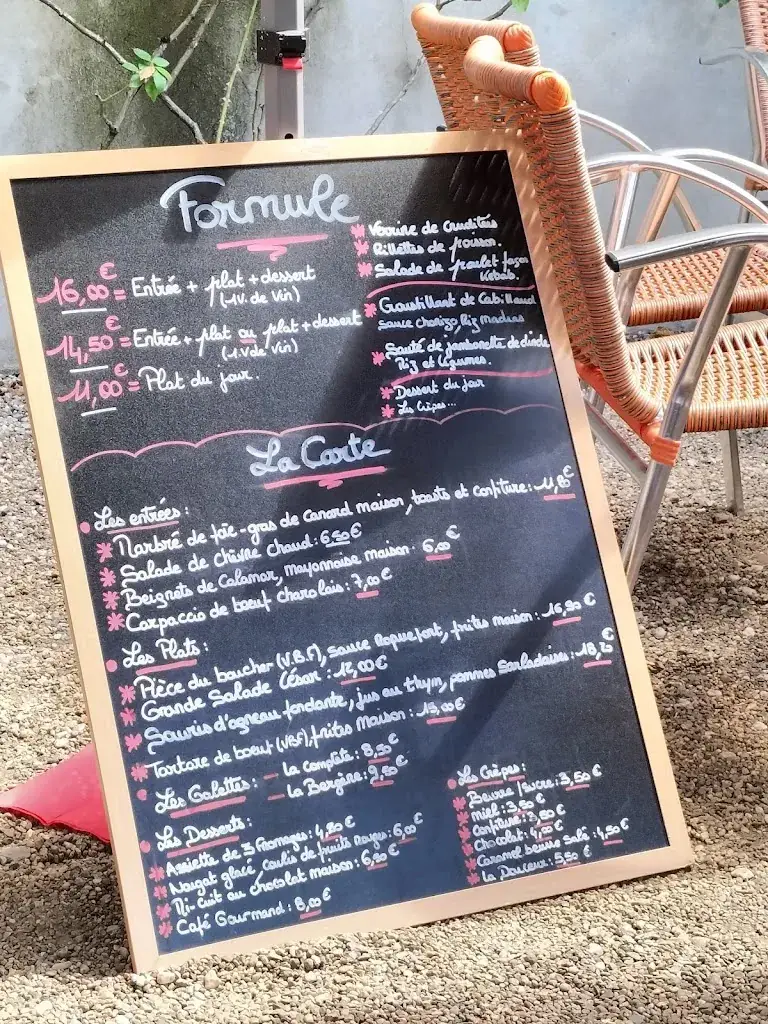 Formule
16,00€ = Entrée + plat + dessert
(1V. de Vin)
14,50€ = Entrée + plat ou plat + dessert
(1.V de Vin)
11,00€ = Plat du jour.
* Verrine de crudités
* Rillettes de poisson.
* Salade de poulet façon
Kebab.
* Croustillant de Cabillaud
Sauce chorizo, Riz madras
* Sauté de jambonette de dinde
Riz et légumes.
* Dessert du jour
* Les Crêpes...
La Carte
Les entrées :
* Marbré de foie-gras de Canard maison, toasts et confiture : 11,80€
* Salade de chèvre chaud : 6,50€
* Beignets de Calamar, mayonnaise maison : 6,00€
* Carpaccio de bœuf charolais : 7,00€
Les Plats :
* Pièce du boucher (V.B.F), sauce Roquefort, frites maison : 16,90€
* Grande Salade César : 12,00€
* Souris d'agneau fondante, jus au thym, pommes Sarladaises : 18,25€
* Tartare de bœuf (VBF), frites Maison : 15,00€
Les Galettes : - la complète : 8,50€
- la Bergère : 9,50€
Les Desserts :
* Assiette de 3 fromages : 4,80€
* Nougat glacé, coulis de fruits rouges : 6,00€
* Mi-cuit au chocolat maison : 6,80€
* Café Gourmand : 8,00€
Les Crêpes :
* Beurre/sucre : 3,50€
* miel : 3,50€
* confiture : 3,50€
* Chocolat : 4,00€
* Caramel beurre salé : 4,50€
* la Douceur : 5,50€